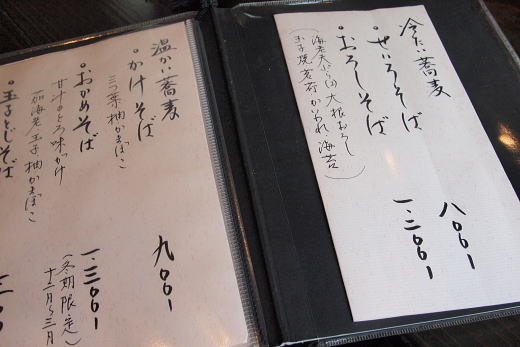 冷たい蕎麦
・せいろそば 八〇〇一
・おろしそば 一、三〇〇一
(海老天ぷら(2) 大根おろし
玉子焼 茗荷 かいわれ 海苔)
温かい蕎麦
・かけそば 九〇〇一
三つ葉 柚 かまぼこ
・おかめそば 一、三〇〇一
甘汁とろ味かけ (冬期限定)
十二月〜三月
海老 玉子 柚 かまぼこ
・玉子とじそば